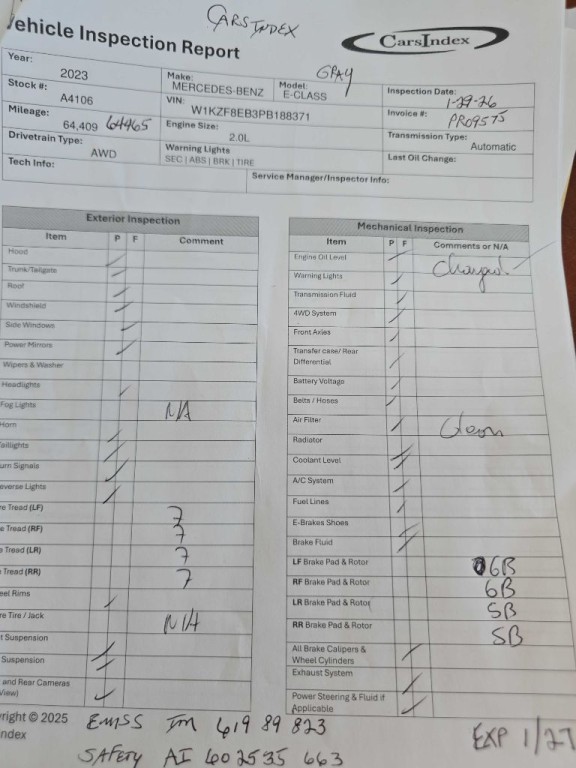 CARSINDEX
ehicle Inspection Report
CarsIndex
GRAY
Year: 2023
Make: MERCEDES-BENZ
Model: E-CLASS
Inspection Date: 1-29-26
Stock #: A4106
VIN: W1KZF8EB3PB188371
Invoice #: PRO9575
Mileage: 64,409 64465
Engine Size: 2.0L
Transmission Type: Automatic
Drivetrain Type: AWD
Warning Lights
SEC | ABS | BRK | TIRE
Last Oil Change:
Tech Info:
Service Manager/Inspector Info:
Exterior Inspection
Item P F Comment
Hood
Trunk/Tailgate
Roof
Windshield
Side Windows
Power Mirrors
Wipers & Washer
Headlights
Fog Lights N/A
Horn
aillights
urn Signals
everse Lights
re Tread (LF) 7
e Tread (RF) 7
e Tread (LR) 7
Tread (RR) 7
eel Rims
re Tire / Jack N/A
t Suspension
Suspension
and Rear Cameras
View)
Mechanical Inspection
Item P F Comments or N/A
Engine Oil Level Changed
Warning Lights
Transmission Fluid
4WD System
Front Axles
Transfer case/ Rear
Differential
Battery Voltage
Belts / Hoses
Air Filter Clean
Radiator
Coolant Level
A/C System
Fuel Lines
E-Brakes Shoes
Brake Fluid
LF Brake Pad & Rotor 6B
RF Brake Pad & Rotor 6B
LR Brake Pad & Rotor 5B
RR Brake Pad & Rotor 5B
All Brake Calipers &
Wheel Cylinders
Exhaust System
Power Steering & Fluid if
Applicable
yright © 2025
ndex
EMSS IM 619 89 823
SAFETY AI 602535 663
EXP 1/27